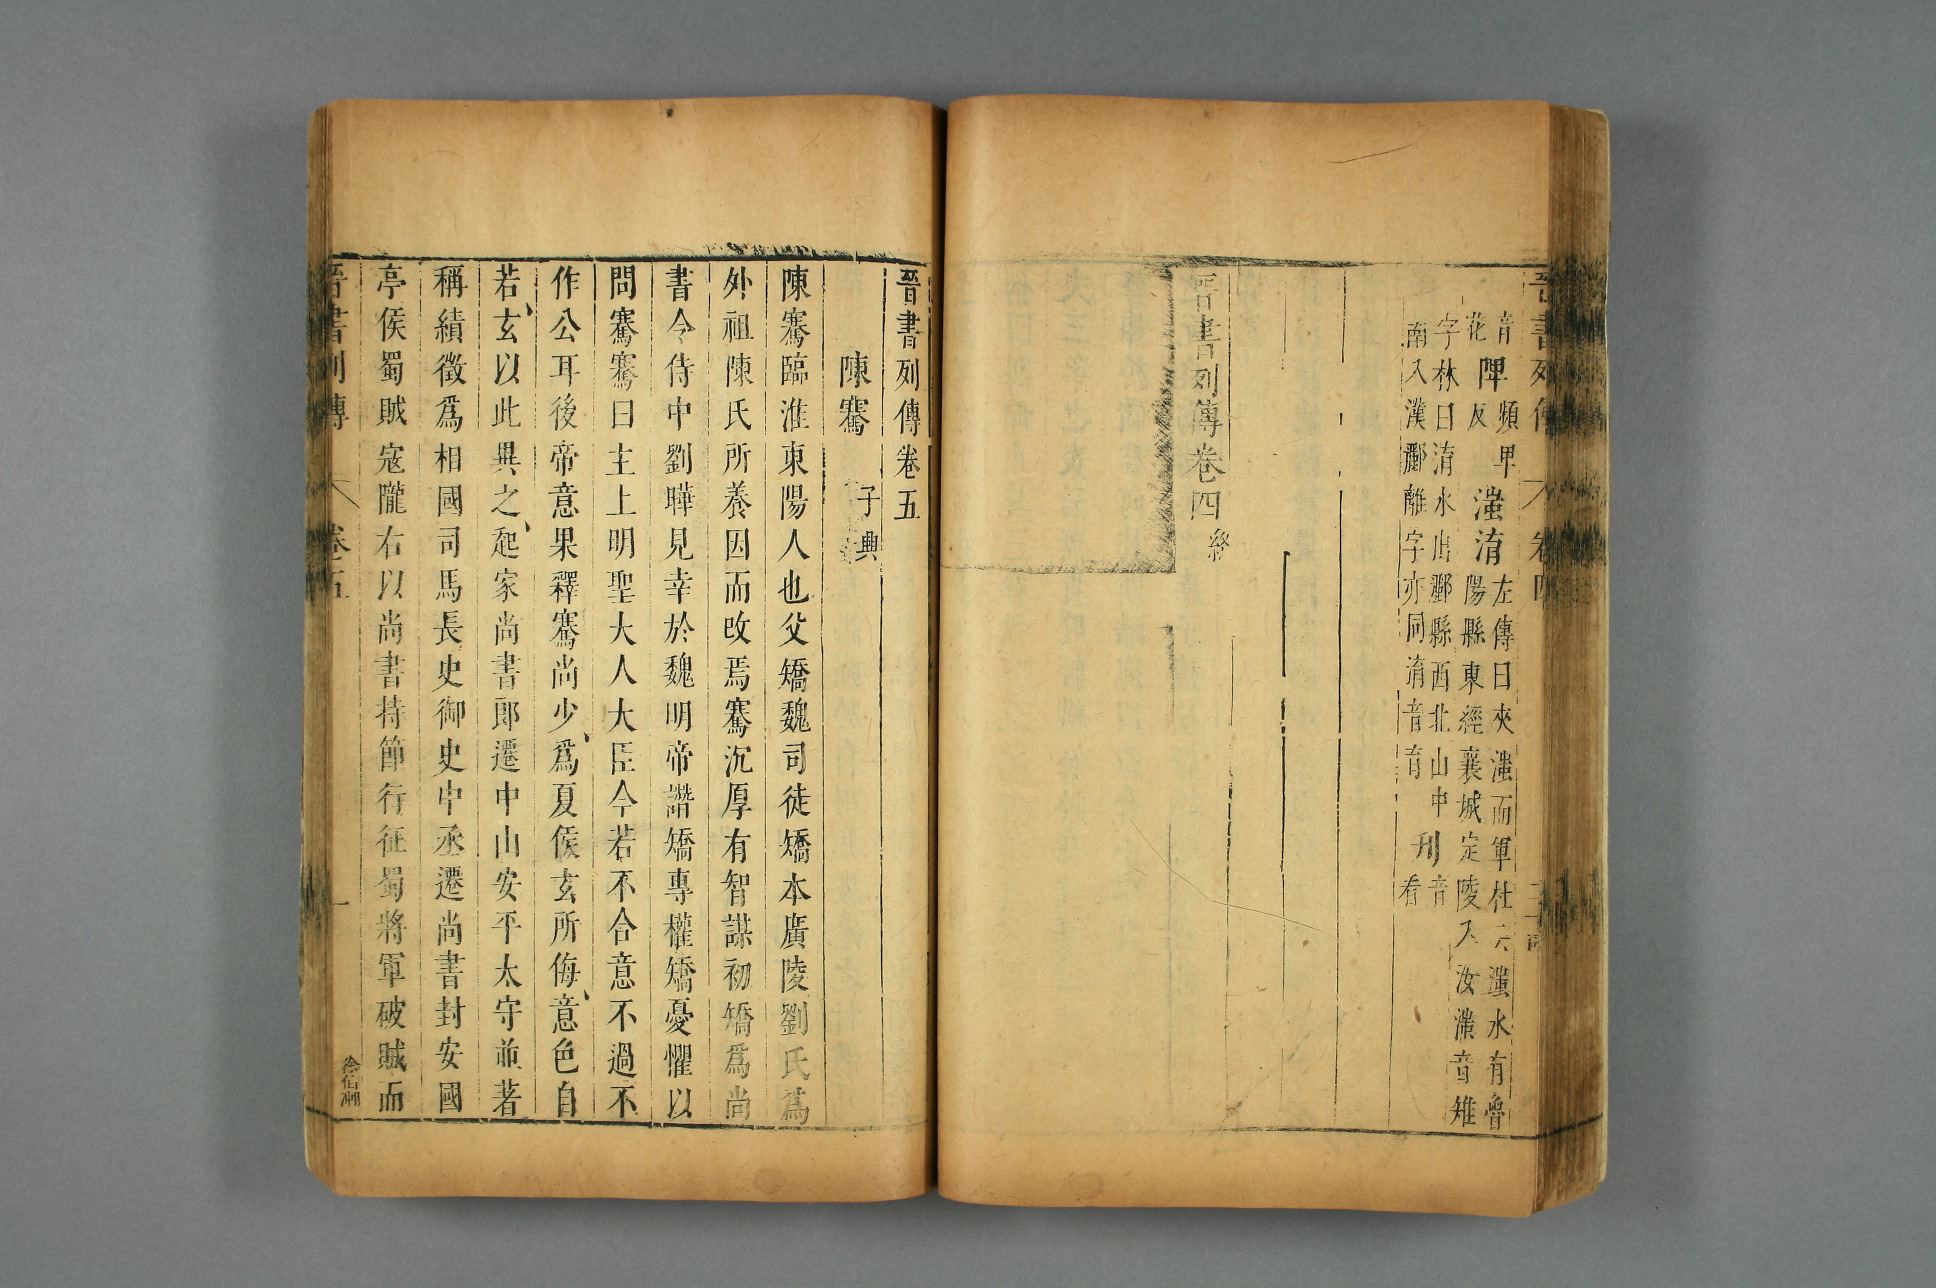 晉書列傳
卷四
音
花
睥
頻甲
反
滍淯
左傳曰夾滍而軍杜云滍水有魯
陽縣東經襄城定陵入汝滍音雉
字林曰淯水出酈縣西北山中
南入漢酈離字亦同淯音育
刑
音
看
晉書列傳卷四
終
晉書列傳卷五
陳騫
子輿
陳騫臨淮東陽人也父矯魏司徒矯本廣陵劉氏爲
外祖陳氏所養因而改焉騫沉厚有智謀初矯爲尚
書令侍中劉曄見幸於魏明帝譖矯專權矯憂懼以
問騫騫曰主上明聖大人大臣今若不合意不過不
作公耳後帝意果釋騫尚少爲夏侯玄所侮意色自
若玄以此異之起家尚書郎遷中山安平太守並著
稱績徵爲相國司馬長史御史中丞遷尚書封安國
亭侯蜀賊寇隴右以尚書持節行征蜀將軍破賊而
晉書列傳
卷五
一